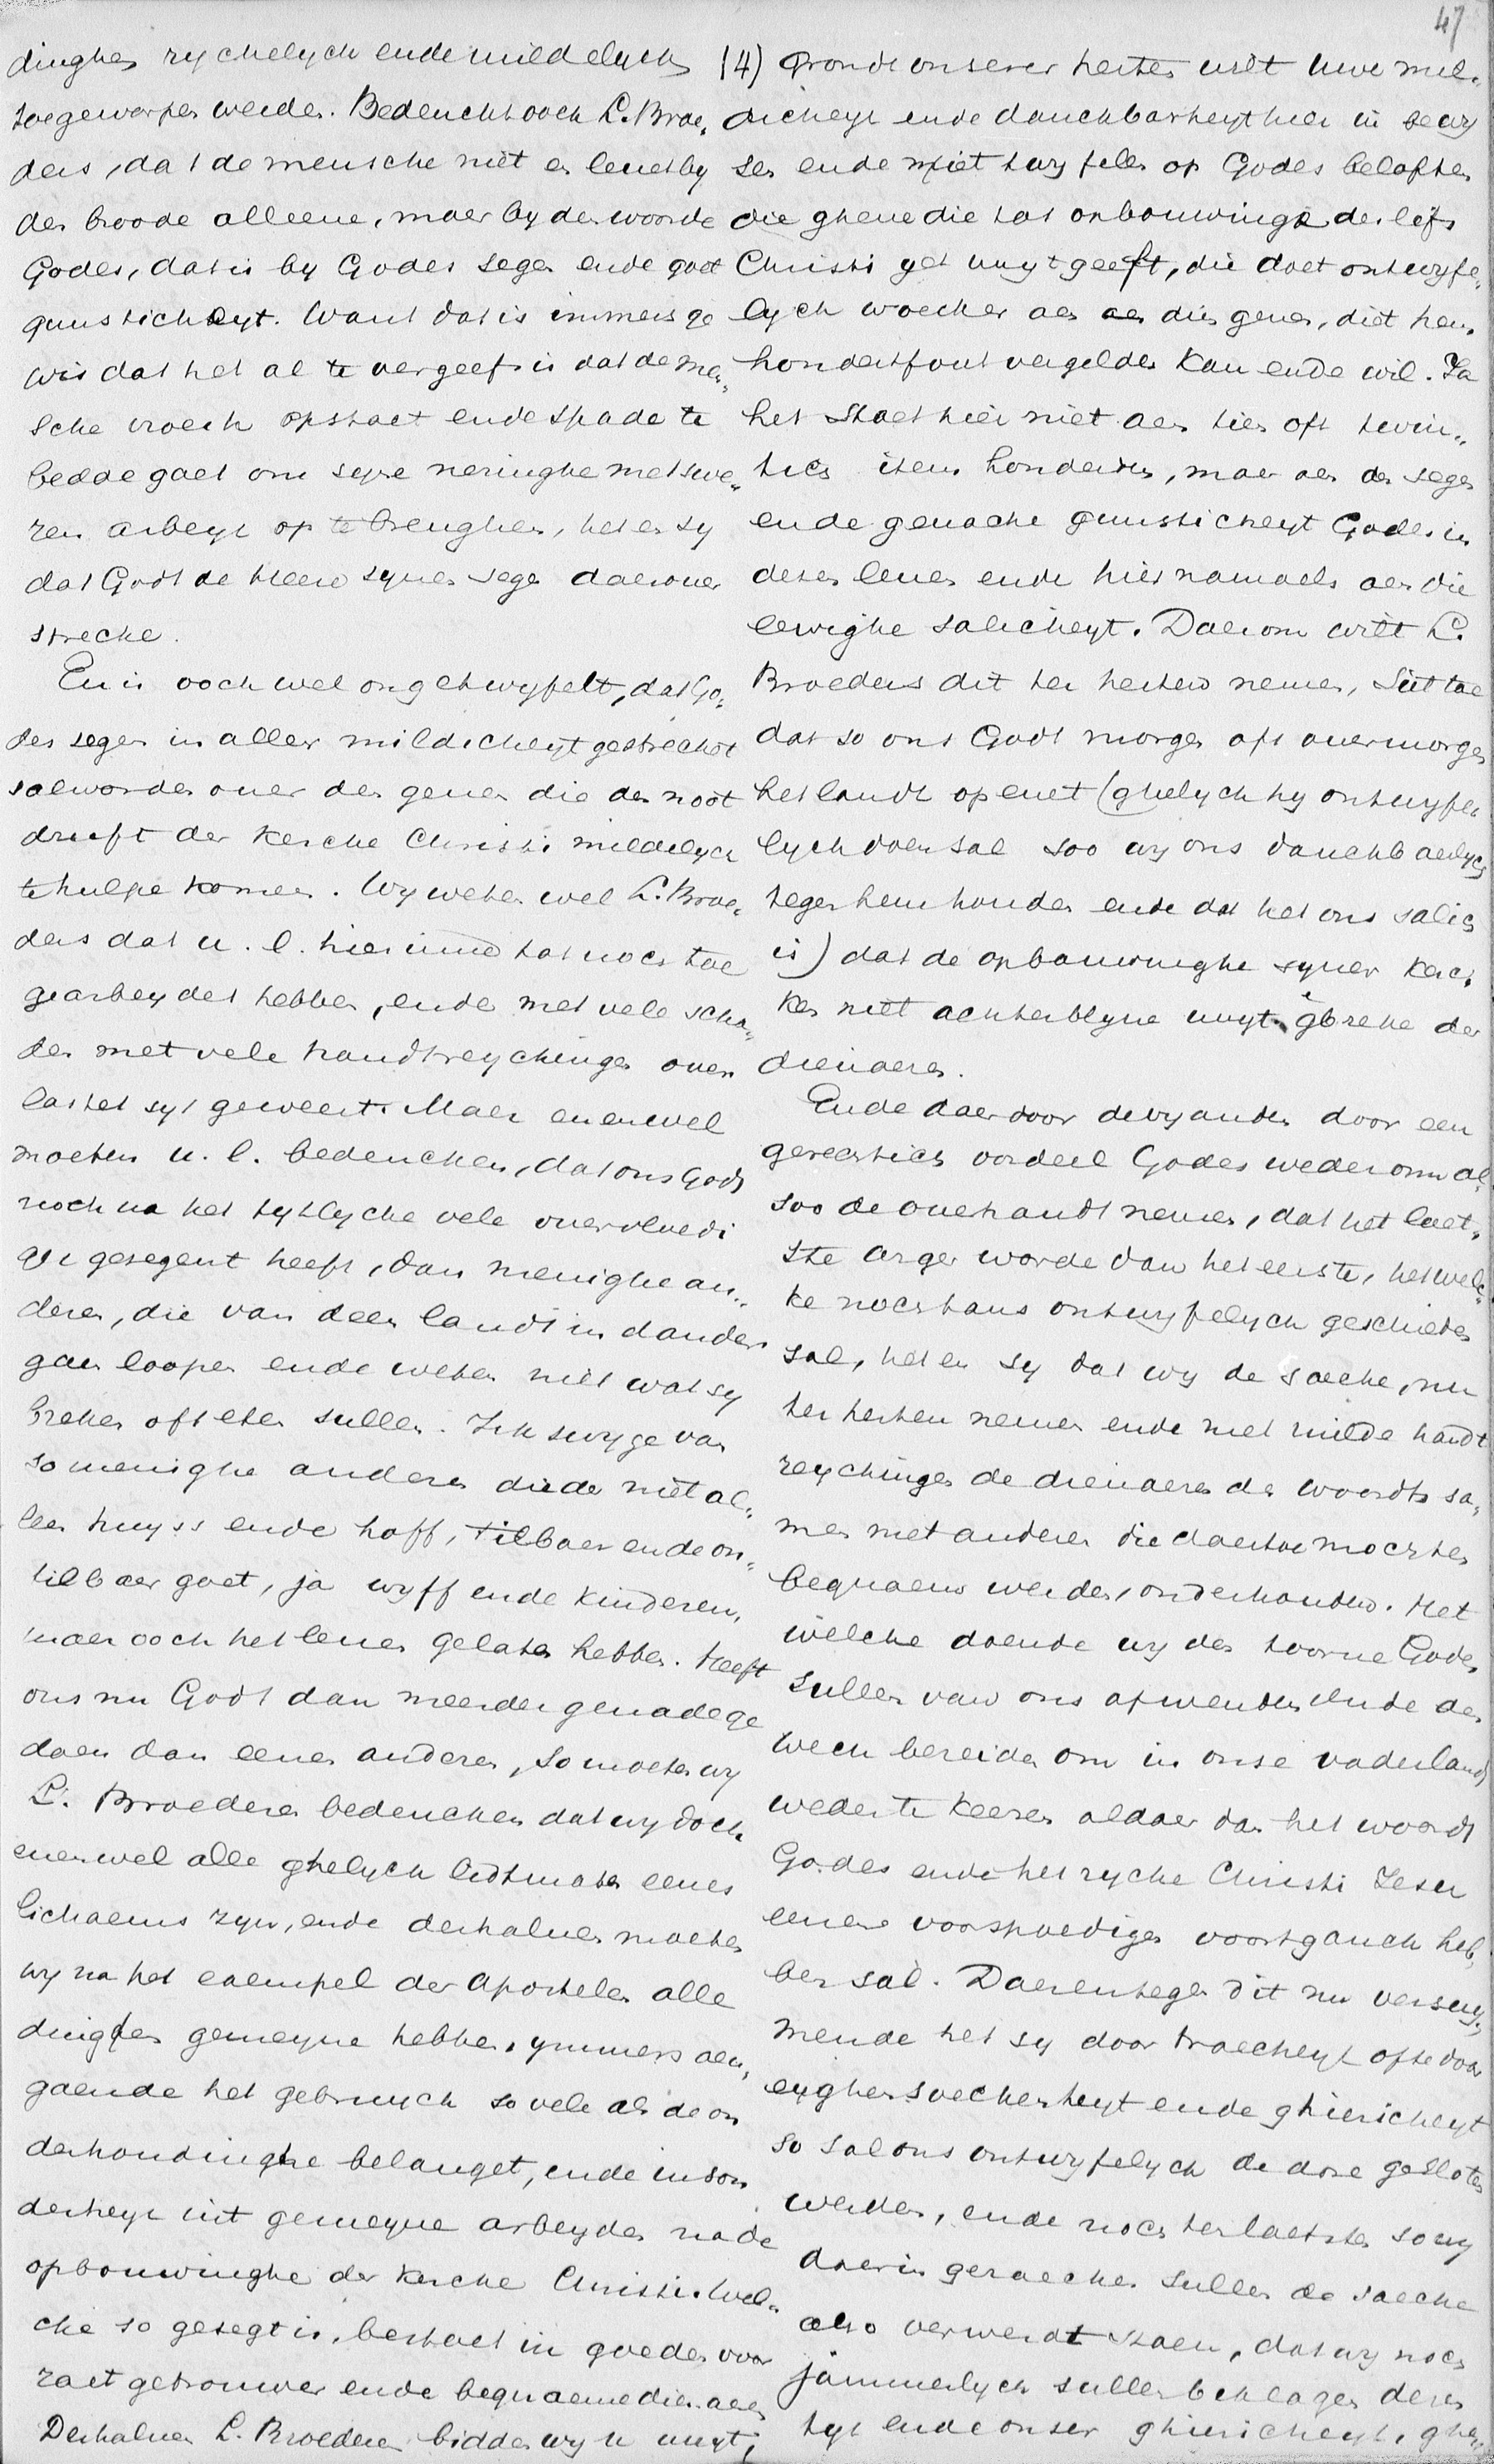 47
dinghen rychelych ende mildelych
toegeworpen werden. Bedenckt ooch L. Broe„
ders, dat de mensche niet en leuet by
den broode alleene, maer by den woorde
Godes, dat is by Godes segen ende goet
gunsticheyt. Want dat is immers ge
wis dat het al te vergeefs is dat de men„
sche vroech opstaet ende spade te
bedde gaet om syne neringhe met swe„
ren arbeyt op te brenghen, het en sy
dat Godt de Heere synen segen daerouer
spreche.
En is ooch wel ongetwyfelt, dat Go„
des segen in aller mildicheyt gestrecket
sal worden ouer den genen die den noot
druft der Kerche Christi mildelych
te hulpe komen. Wy weten wel L. Broe„
ders dat u. l. hierinne tot noch toe
gearbeydet hebben, ende met vele scha„
den met vele handtreychingen over
lastet syt geweest. Maer euenwel
moeten u. l. bedencken, dat ons Godt
noch na het tytlyche vele ouervloedi
ger gesegent heeft, dan menighe an„
deren, die van deen landt in dander
gaen loopen ende weten niet wat sy
breken oft eten sullen. Ick swyge van
so menighe anderen die de niet al„
leen huys ende hoff, tilbaer ende on„
tilbaer goet, ja wyff ende kinderen,
maer ooch het leuen gelaten hebben. Heeft
ons nu Godt dan meerder genade ge
daen dan eenen anderen, so moeten wy
L. Broederen bedencken dat wy doch
euenwel alle ghelych lidtmaten eenes
lichaems zyn, ende derhaluen moeten
wy na het exempel der Apostelen alle
dinghen gemeyne hebben, ymmers aen„
gaende het gebruych so vele als de on
derhoudinghe belanget, ende in son
derheyt int gemeyne arbeyden na de
opbouwinghe der Kerche Christi. Wel„
che so gesegt is, bestaet in goeden voor
raet getrouwer ende bequaeme dienaren
Derhaluen L. Broederen bidden wy u uuyt„
(4) gronde onserer herten wilt uwe mil„
dicheyt ende danchbarheyt hier in bewy
sen ende niet twyfelen op Godes beloften
die ghene die tot opbouwinge des lyfs
Christi yet uuytgeeft, die doet ontwyfe„
lych woecker aen dien genen, diet hem
hondertfout vergelden kan ende wil. Ja
het staet hier niet aen tien oft twin„
tich item honderten, maer aen den segen
ende genache gunsticheyt Godes in
desen leuen ende hier namaels aen die
eewighe salicheyt. Daerom wilt L.
Broeders dit ter herten nemen, Siet toe
dat so ons Godt morgen oft ouermorgen
het landt openet (ghelych hy ontwyfe
lych doen sal soo wy ons danchbaerlych
tegen hem houden ende dat het ons salich
is) dat de opbouwinghe syner Kerc„
ken niet achterblyue uuyt gebreke der
dienaren.
Ende daer door de vyanden door een
gerechtich oordeel Godes wederomm al„
soo de ouerhandt nemen, dat het laet„
ste arger worde dan het eerste, hetwelc„
ke nochtans ontwyfelych geschieden
sal, het en sy dat wy de saecke, nu
ter herten nemen ende met milde handt
reychingen de dienaren des woordts sa„
men met anderen die daertoe mochten
bequaem werden, onderhouden. Het
welche doende wy den toorne Godes
sullen van ons afwenden ende den
wech bereiden om in onse vaderlandt
weder te keeren aldaer dan het woordt
Godes ende het ryche Christi Jesu
eenen voorspoedigen voortganch heb„
ben sal. Daerentegen dit nu versuy„
mende het sy door traecheyt ofte door
eyghensoeckenheyt ende ghiericheyt
so sal ons ontwyfelych de dore gesloten
werden, ende noch ten laetsten so wy
daerin geraecken sullen de saecke
also verwerdt staen, dat wy noch
jammerlych sullen beklagen deren
tyt ende onser ghiericheyt, ghe„